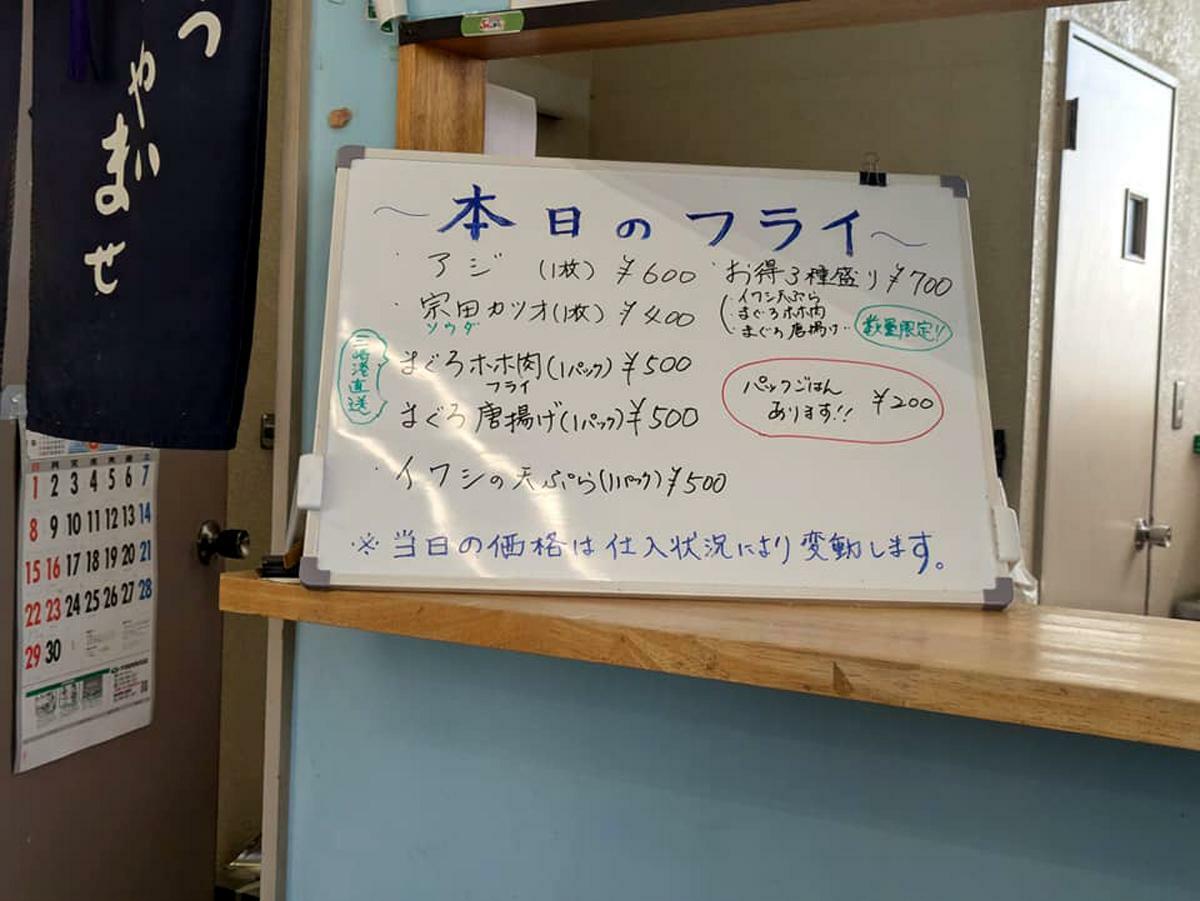 つ
やい
ませ
～本日のフライ～
・アジ (1枚) ¥600
・宗田カツオ(1枚) ¥400
ソウダ
三崎港直送
まぐろホホ肉(1パック)¥500
フライ
まぐろ唐揚げ(1パック)¥500
・イワシの天ぷら(1パック)¥500
・お得3種盛り¥700
・イワシ天ぷら
・まぐろホホ肉
・まぐろ唐揚げ
数量限定!!
パックごはん
あります!! ¥200
※当日の価格は仕入状況により変動します。
日 月 火 水 木 金 土
1 2 3 4 5 6 7
8 9 10 11 12 13 14
15 16 17 18 19 20 21
22 23 24 25 26 27 28
29 30